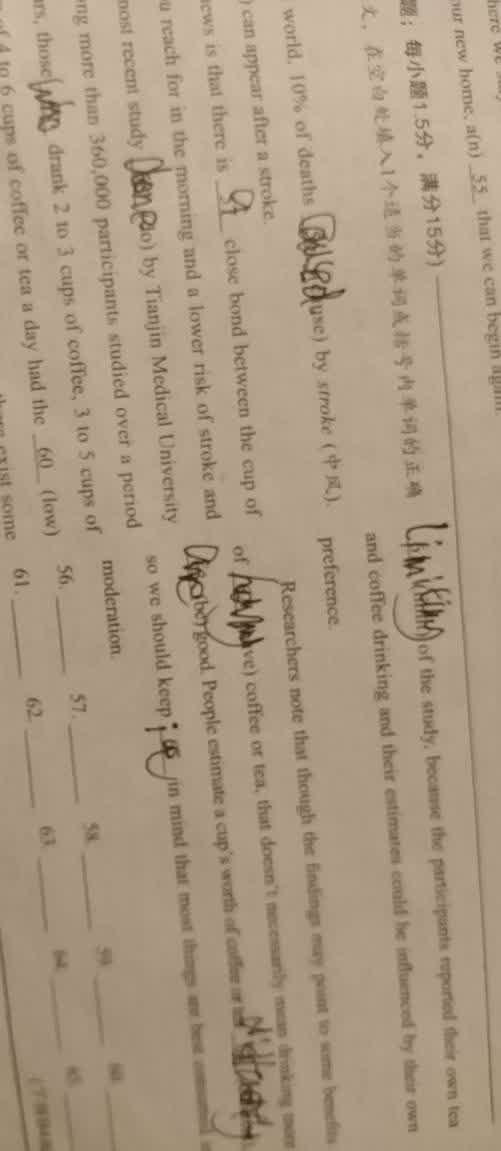 here we
our new home, a(n) 55 that we can begin again.
题；每小题1.5分，满分15分)
文，在空白处填入1个适当的单词或括号内单词的正确
world. 10% of deaths caused (use) by stroke (中风).
) can appear after a stroke.
ews is that there is 57 close bond between the cup of
u reach for in the morning and a lower risk of stroke and
most recent study (do) by Tianjin Medical University
ng more than 360,000 participants studied over a period
rs, those who drank 2 to 3 cups of coffee, 3 to 5 cups of
of 4 to 6 cups of coffee or tea a day had the 60 (low)
there exist some
of the study, because the participants reported their own tea
and coffee drinking and their estimates could be influenced by their own
preference.
Researchers note that though the findings may point to some benefits
of (ve) coffee or tea, that doesn't necessarily mean drinking more
(be) good. People estimate a cup's worth of coffee or tea
so we should keep in mind that most things are best
moderation.
56. 57. 58. 59. 60.
61. 62. 63. 64. 65.